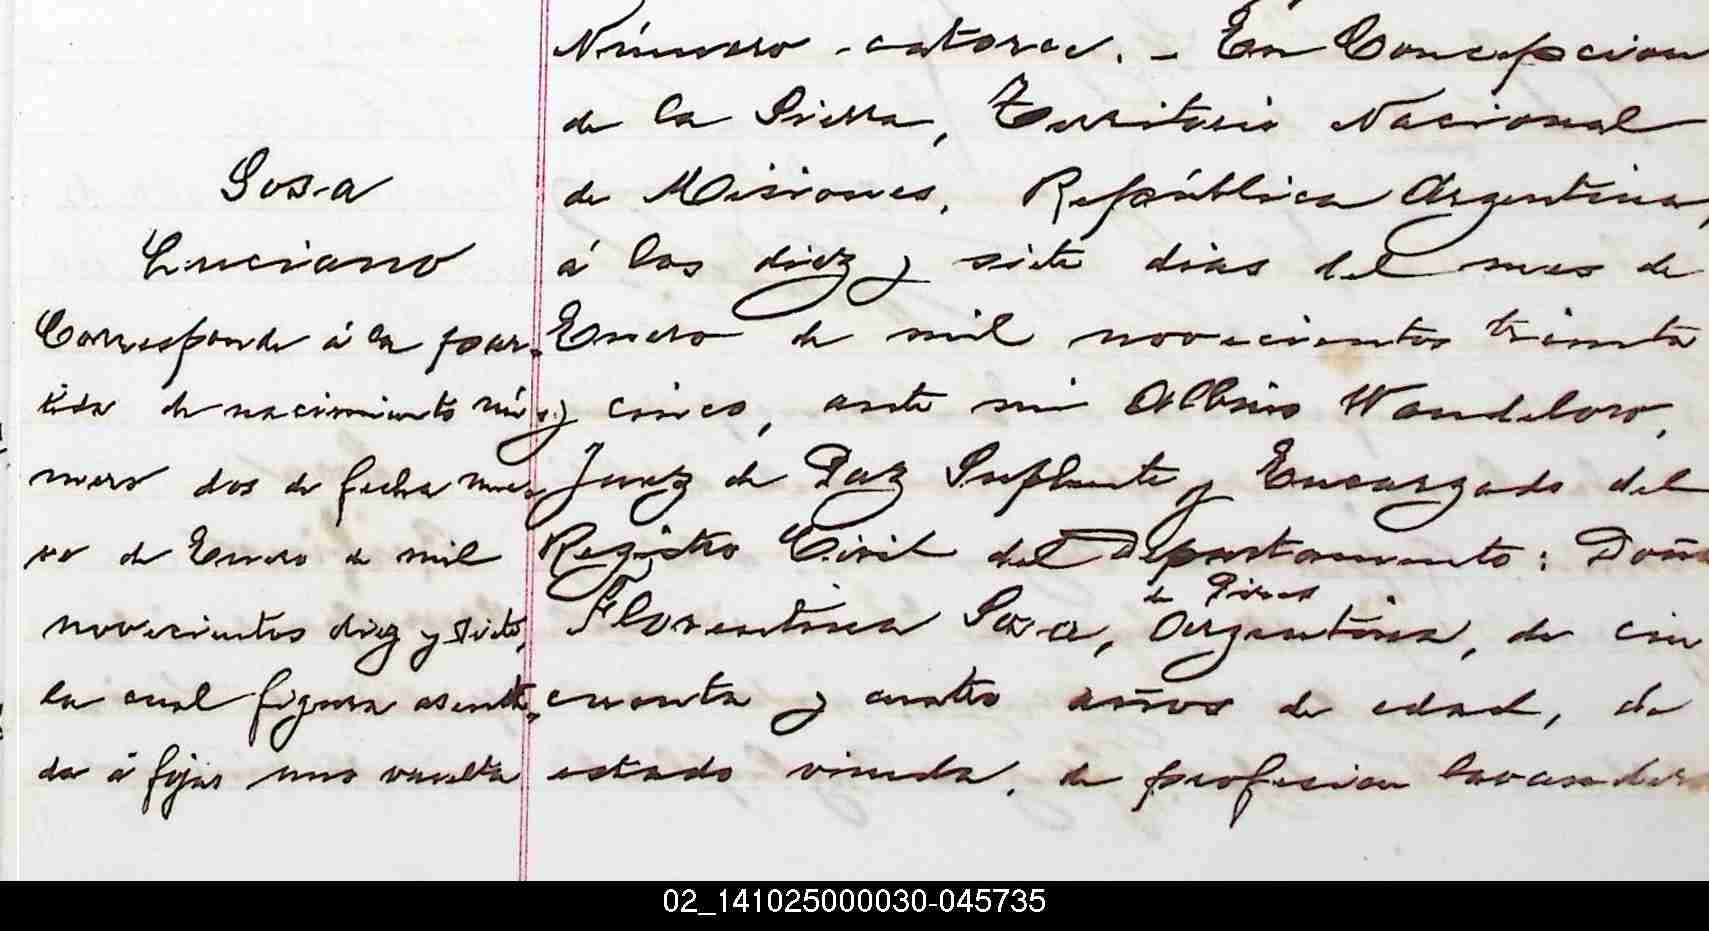 Sosa
Luciano
Corresponde á la par-
tida de nacimiento nú-
mero dos de fecha nue-
ve de Enero de mil
novecientos diez y siete,
la cual figura asenta-
da á fojas uno vuelta
Número catorce. - En Concepcion
de la Sierra, Territorio Nacional
de Misiones, República Argentina,
á los diez y siete dias del mes de
Enero de mil novecientos treinta
y cinco, ante mi Albino Wandeloro,
Juez de Paz Suplente y Encargado del
Registro Civil del Departamento: Doña
de Pires
Florentina Sosa, Argentina, de cin
cuenta y cuatro años de edad, de
estado viuda, de profesion lavandera
02_141025000030-045735